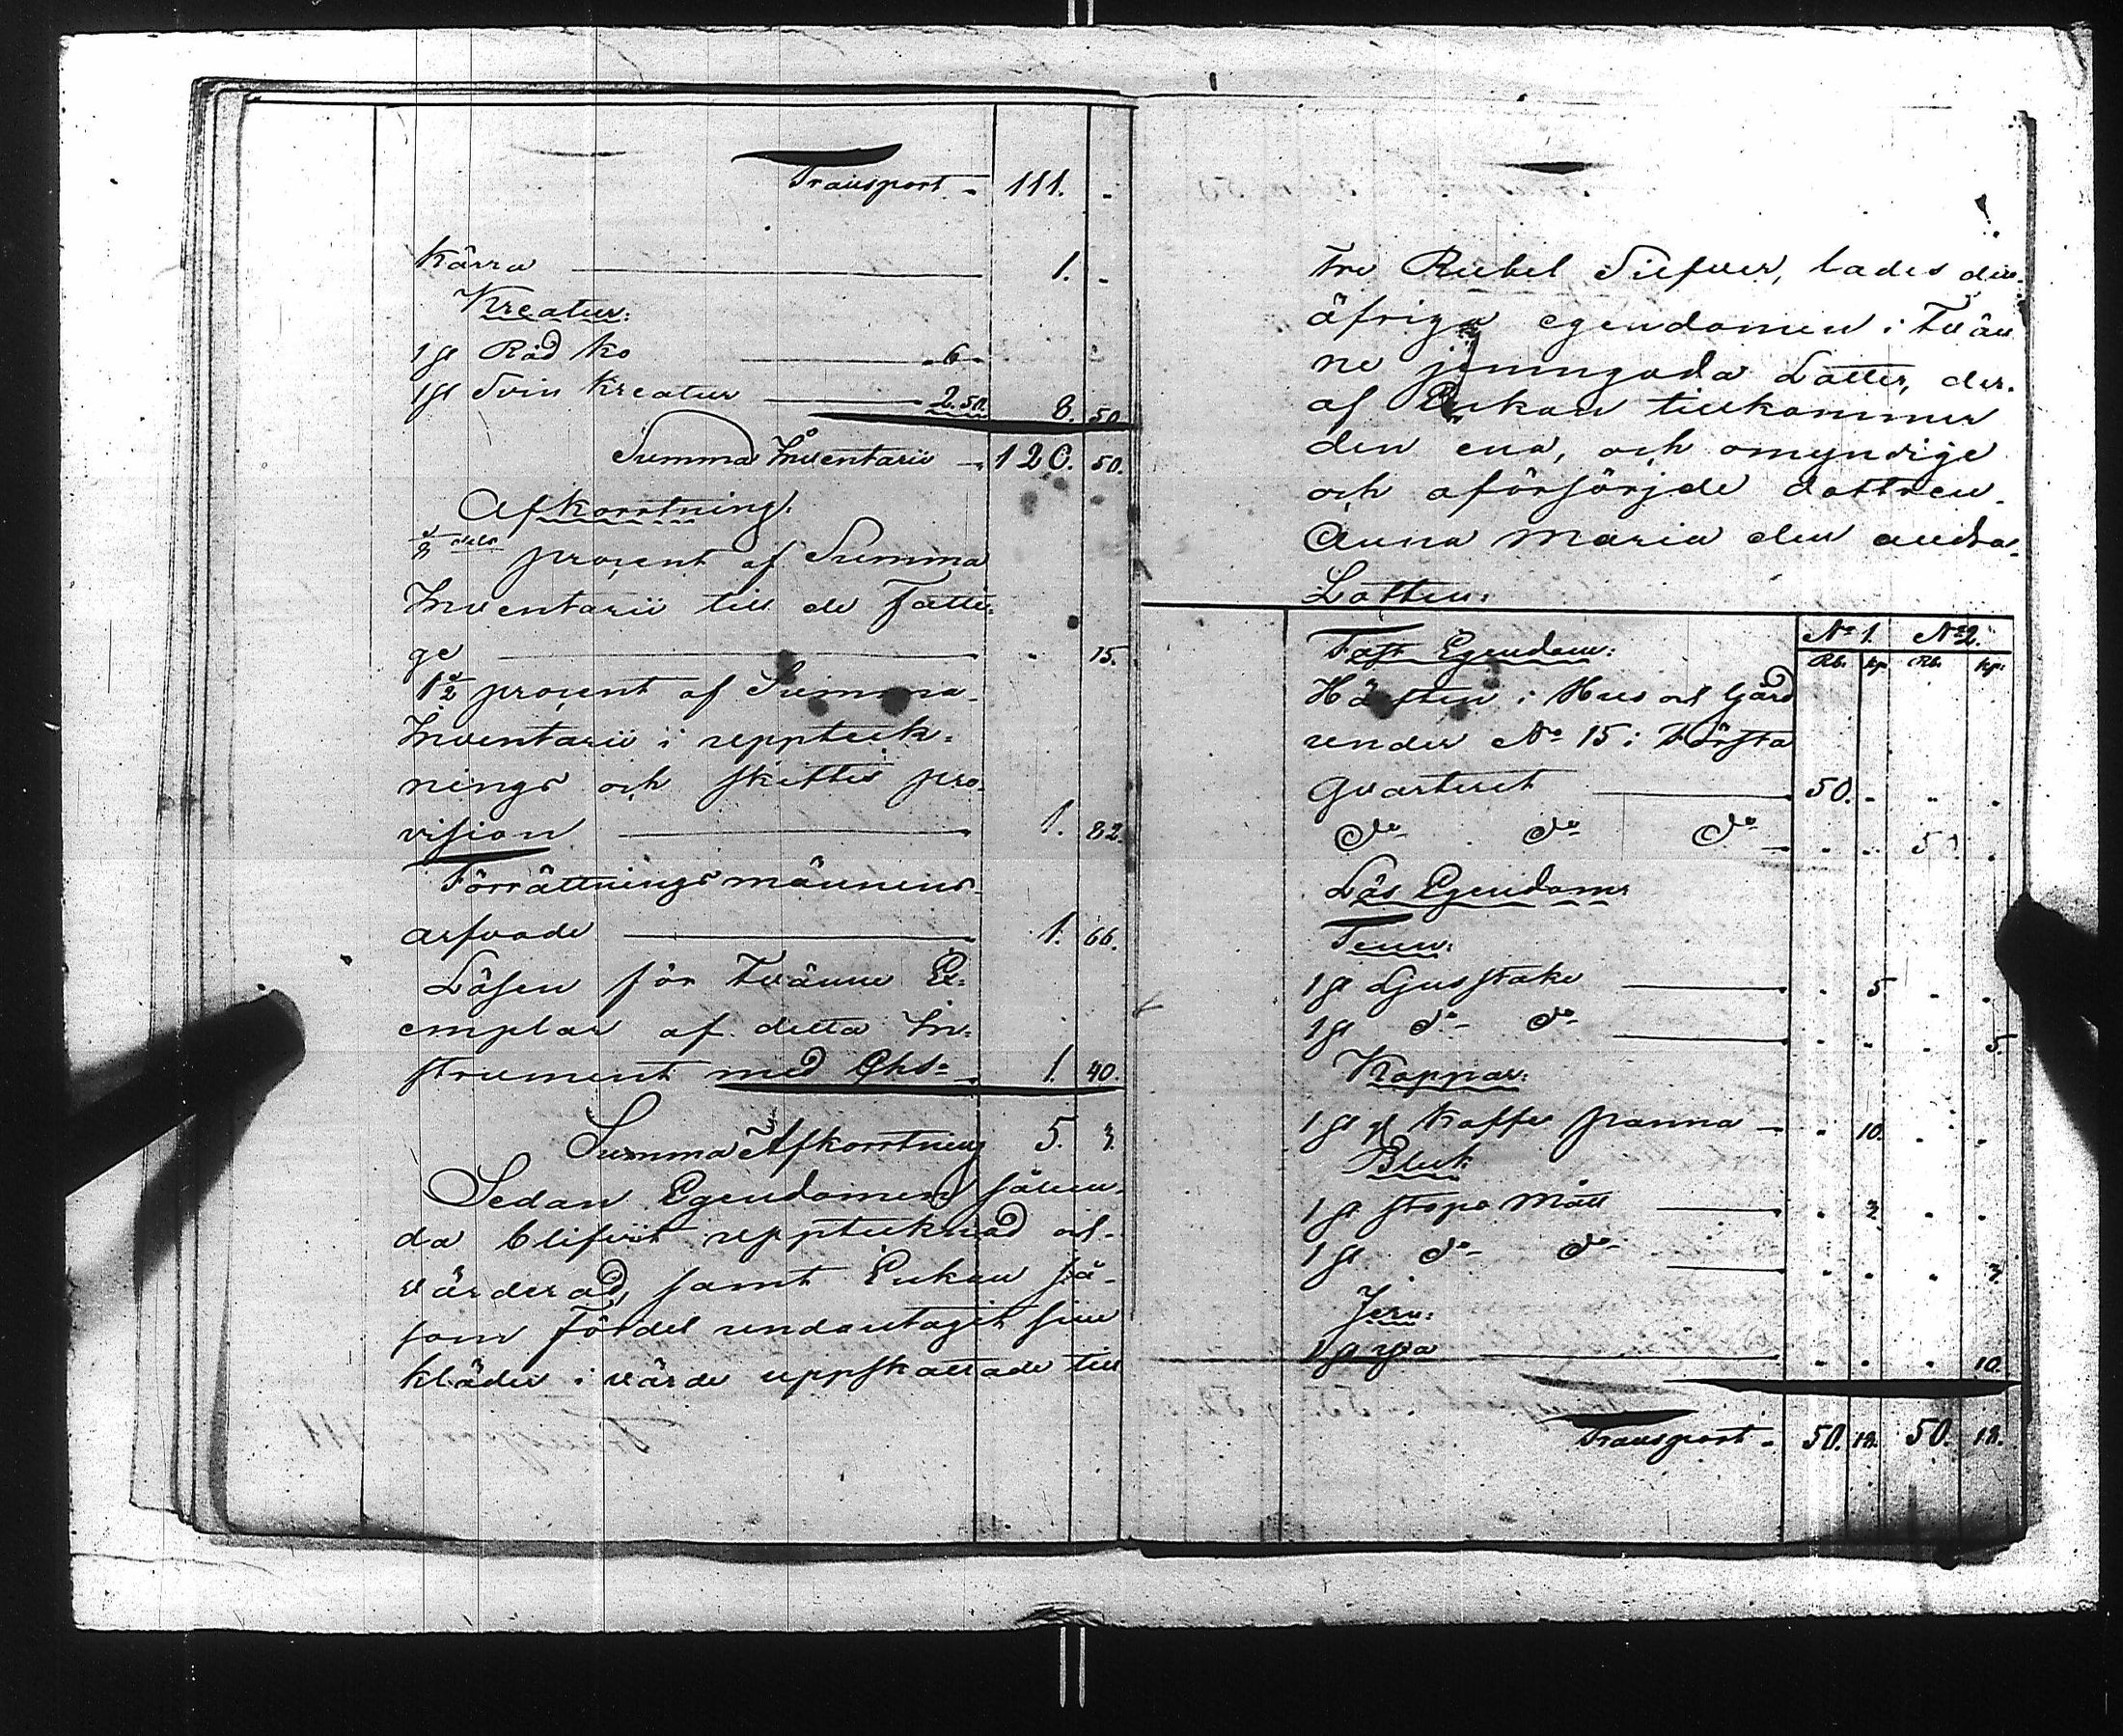 Transport - 111. -
Kärra 1. -
Kreatur:
1 st Röd Ko 6 -
1 st Svin Kreatur 2.50. 8. 50.
Summa Inventarii - 120. 50.
Afkorrtning:
1/8 dels procent af Summa
Inventarii till de Fatti-
ge - 15.
1 1/2 procent af Summa
Inventarii i upptek-
nings och skiftes pro-
vision 1. 82.
Förrättningsmännens
arfvode 1. 66.
Lösen för tvänne Ex-
emplar af detta In-
strument med Chs- 1. 40.
Summa Afkorrtning 5. 3.
Sedan Egendomen sålun-
da blifvit upptecknad och
värderad, samt Enkan så-
som Fördel undantagit sine
kläder i värde uppskattade till
tre Rubel Silfver, lades den
öfriga egendomen i Tvän
ne jemngoda Lotter, der-
af Enkan tillkommer
den ena, och omyndige
och oförsörjde dottren
Anna Maria den andra
Lotten:
Fast Egendom: No 1. No 2.
Rb. kp. Rb. kp.
Hälften i Hus och Gård
under No 15 i Första
Qvarteret 50. - - -
do do do - - 50. -
Lös Egendom:
Tenn:
1 st Ljusstake - 5 - -
1 st do do - - - 5.
Koppar:
1 st gl Kaffe panna - 10. - -
Bleck:
1 st stops Mått - 3. - -
1 st do do - - - 3.
Jern:
1 st yxa - - - 10.
Transport - 50. 18. 50. 18.